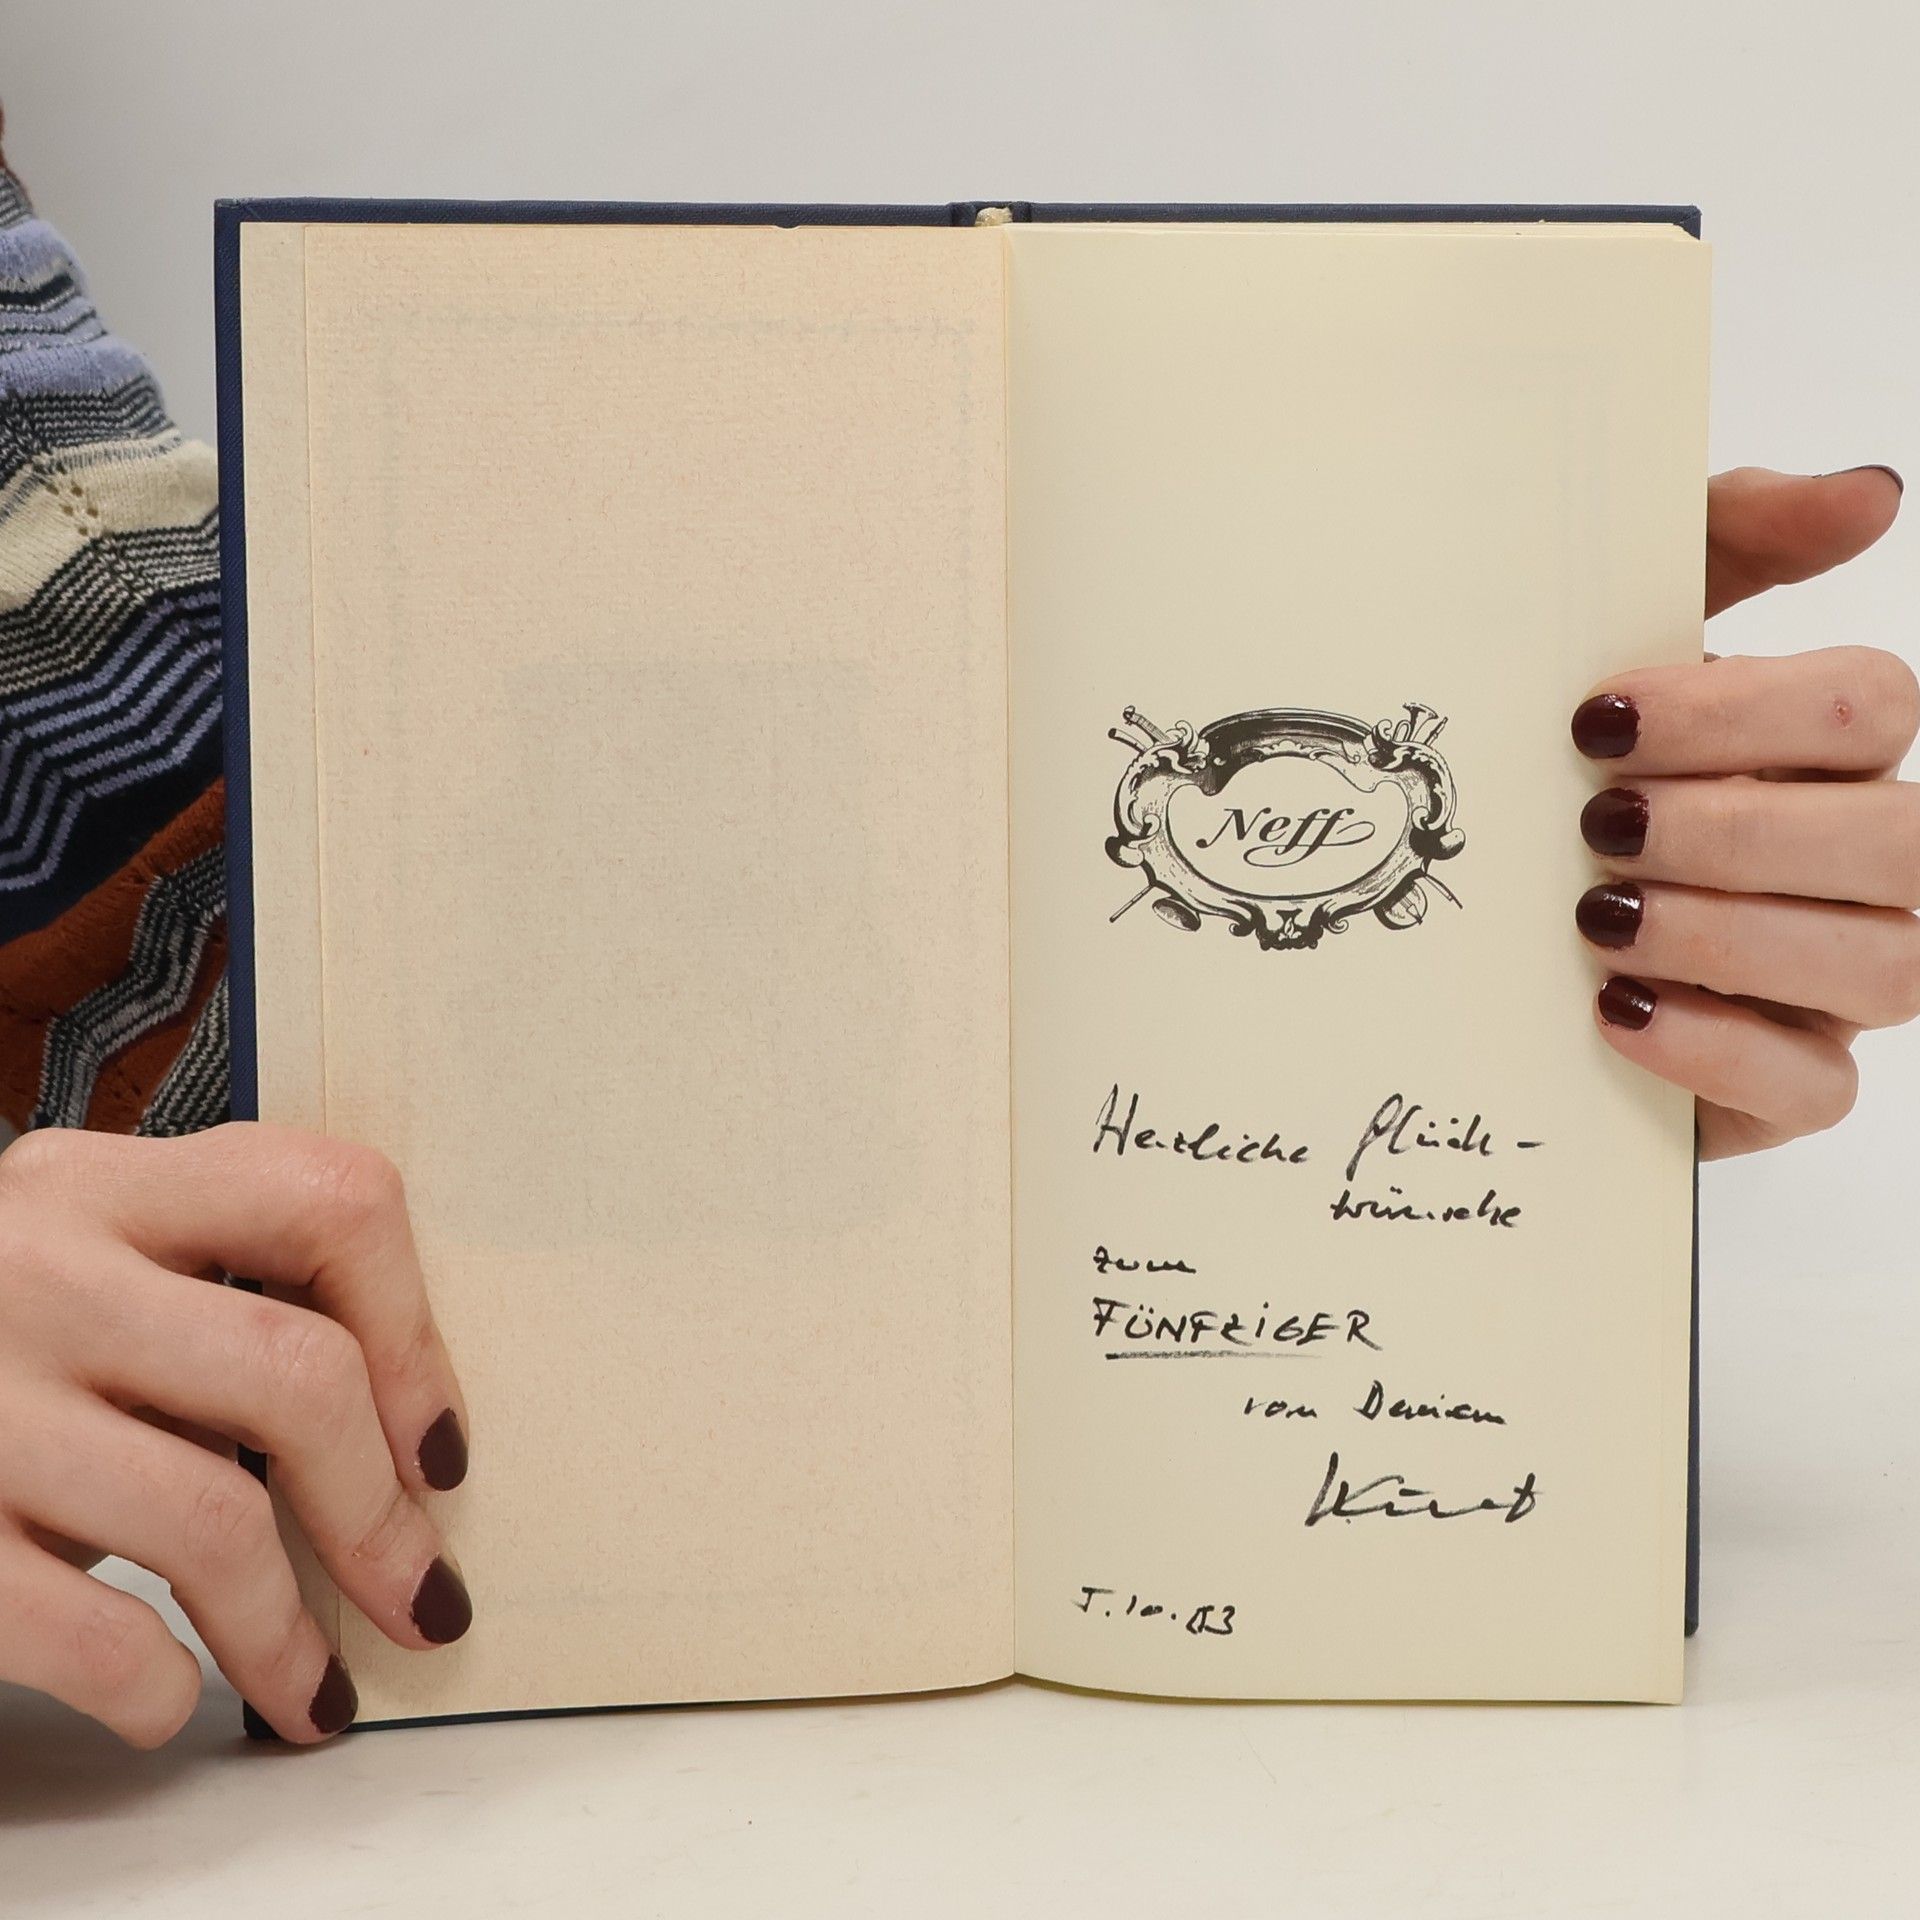 Neff
Herzliche Glück-
wünsche
zum
FÜNFZIGER
von Deinem
Kurt
5.10.83